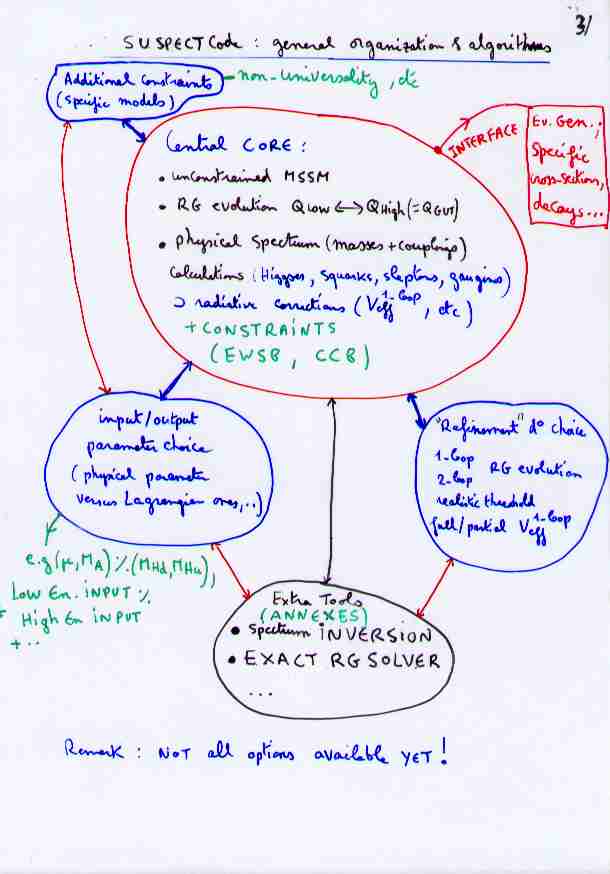 3/
SUSPECT Code : general organization & algorithms
Additional Constraints
(Specific models)
non-universality, etc
Central CORE :
• unconstrained MSSM
• RG evolution QLow <-> QHigh (= QGUT)
• physical spectrum (masses + couplings)
calculations (Higgses, squarks, sleptons, gauginos)
⊃ radiative corrections (Veff 1-loop, etc)
+ CONSTRAINTS
(EWSB, CCB)
INTERFACE
Ev. Gen. ;
Specific
cross-sections,
decays...
input/output
parameter choice
(physical parameter
versus Lagrangian ones,..)
e.g (μ, MA) %. (MHd, MHu),
Low En. iNPUT %
High En iNPUT
+ ..
"Refinement" do choice
1-loop
2-loop RG evolution
realistic threshold
full/partial Veff 1-loop
Extra Tools
(ANNEXES)
• Spectrum iNVERSION
• EXACT RG SOLVER
...
Remark : NOT all options available YET !